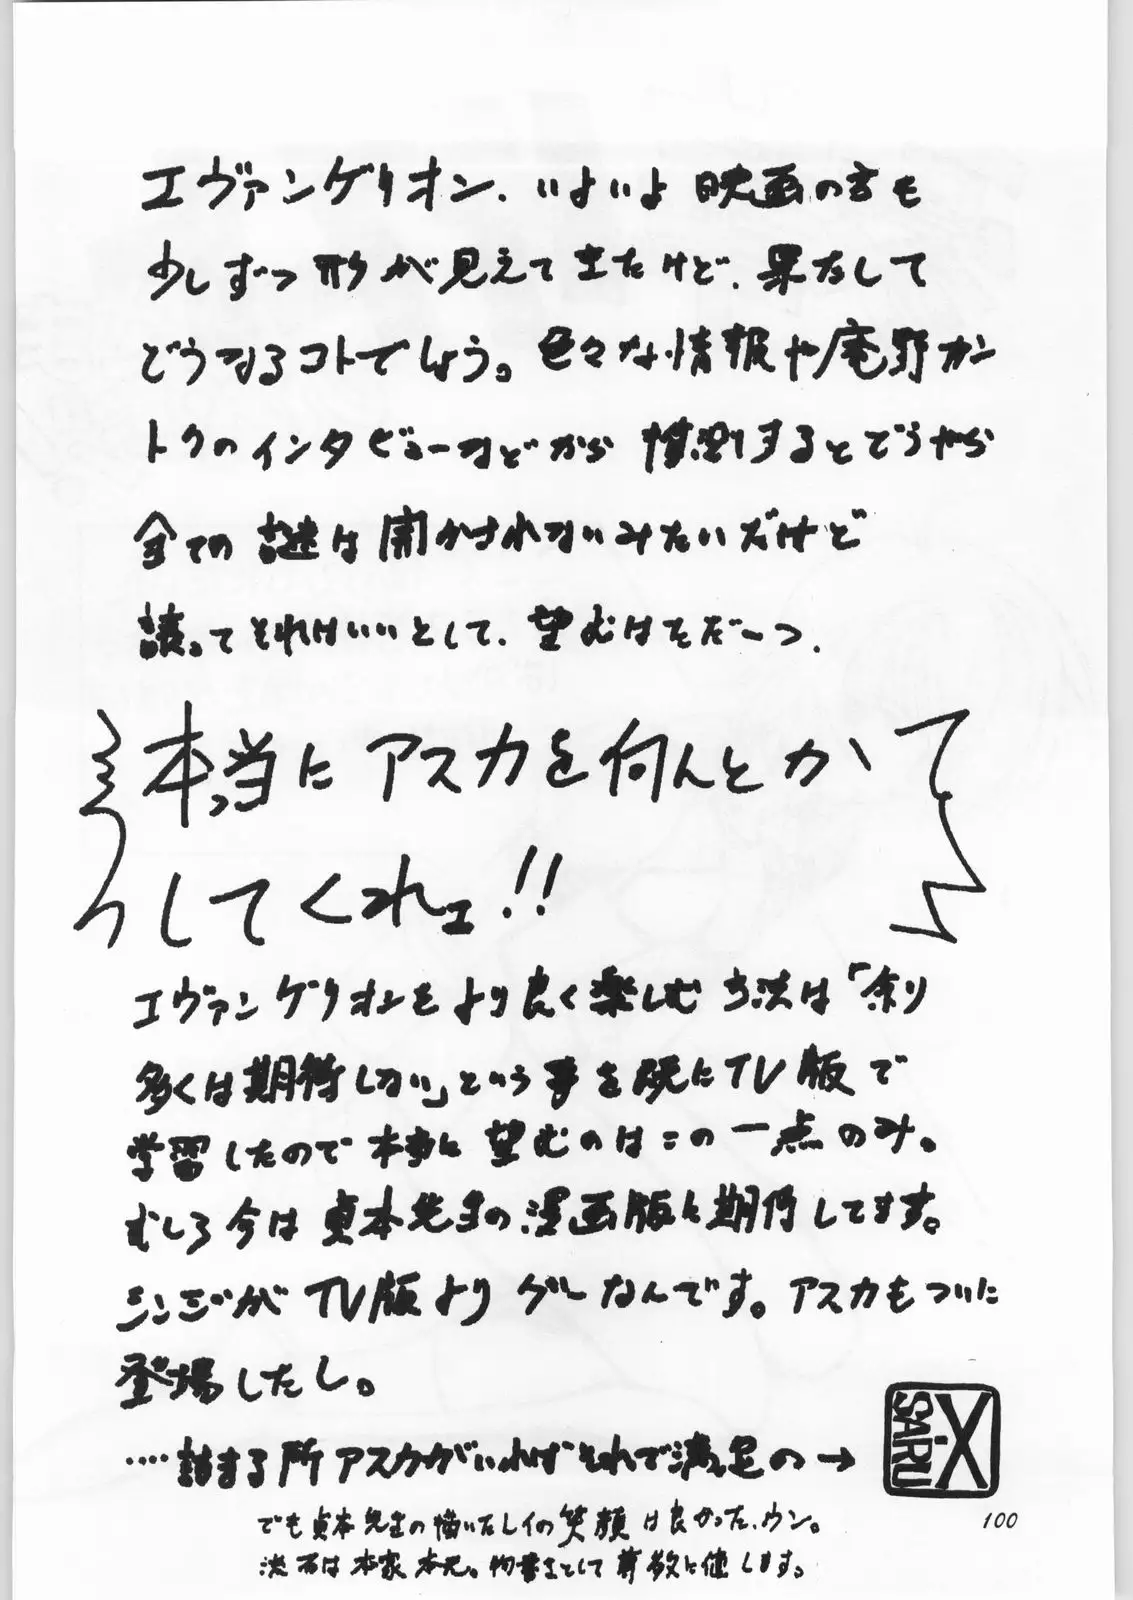 エヴァンゲリオン、いよいよ映画の方も
少しずつ形が見えてきたけど、果たして
どうなるコトでしょう。色々な情報や庵野カン
トクのインタビューなどから推測するとどうやら
全ての謎は開かされないみたいだけど
譲ってそれはいいとして、望むはただ一つ、
本当にアスカを何んとか
してくれェ!!
エヴァンゲリオンをより良く楽しむ方法は「余り
多くは期待しない」という事を既にTV版で
学習したので本当に望むのはこの一点のみ。
むしろ今は貞本先生の漫画版に期待してます。
シンジがTV版よりグーなんです。アスカもついに
登場したし。
‥‥詰まる所アスカがいればそれで満足の→
X-SARU
でも貞本先生の描いたレイの笑顔は良かった、ウン。
流石は本家本元。物書きとして尊敬に値します。
100